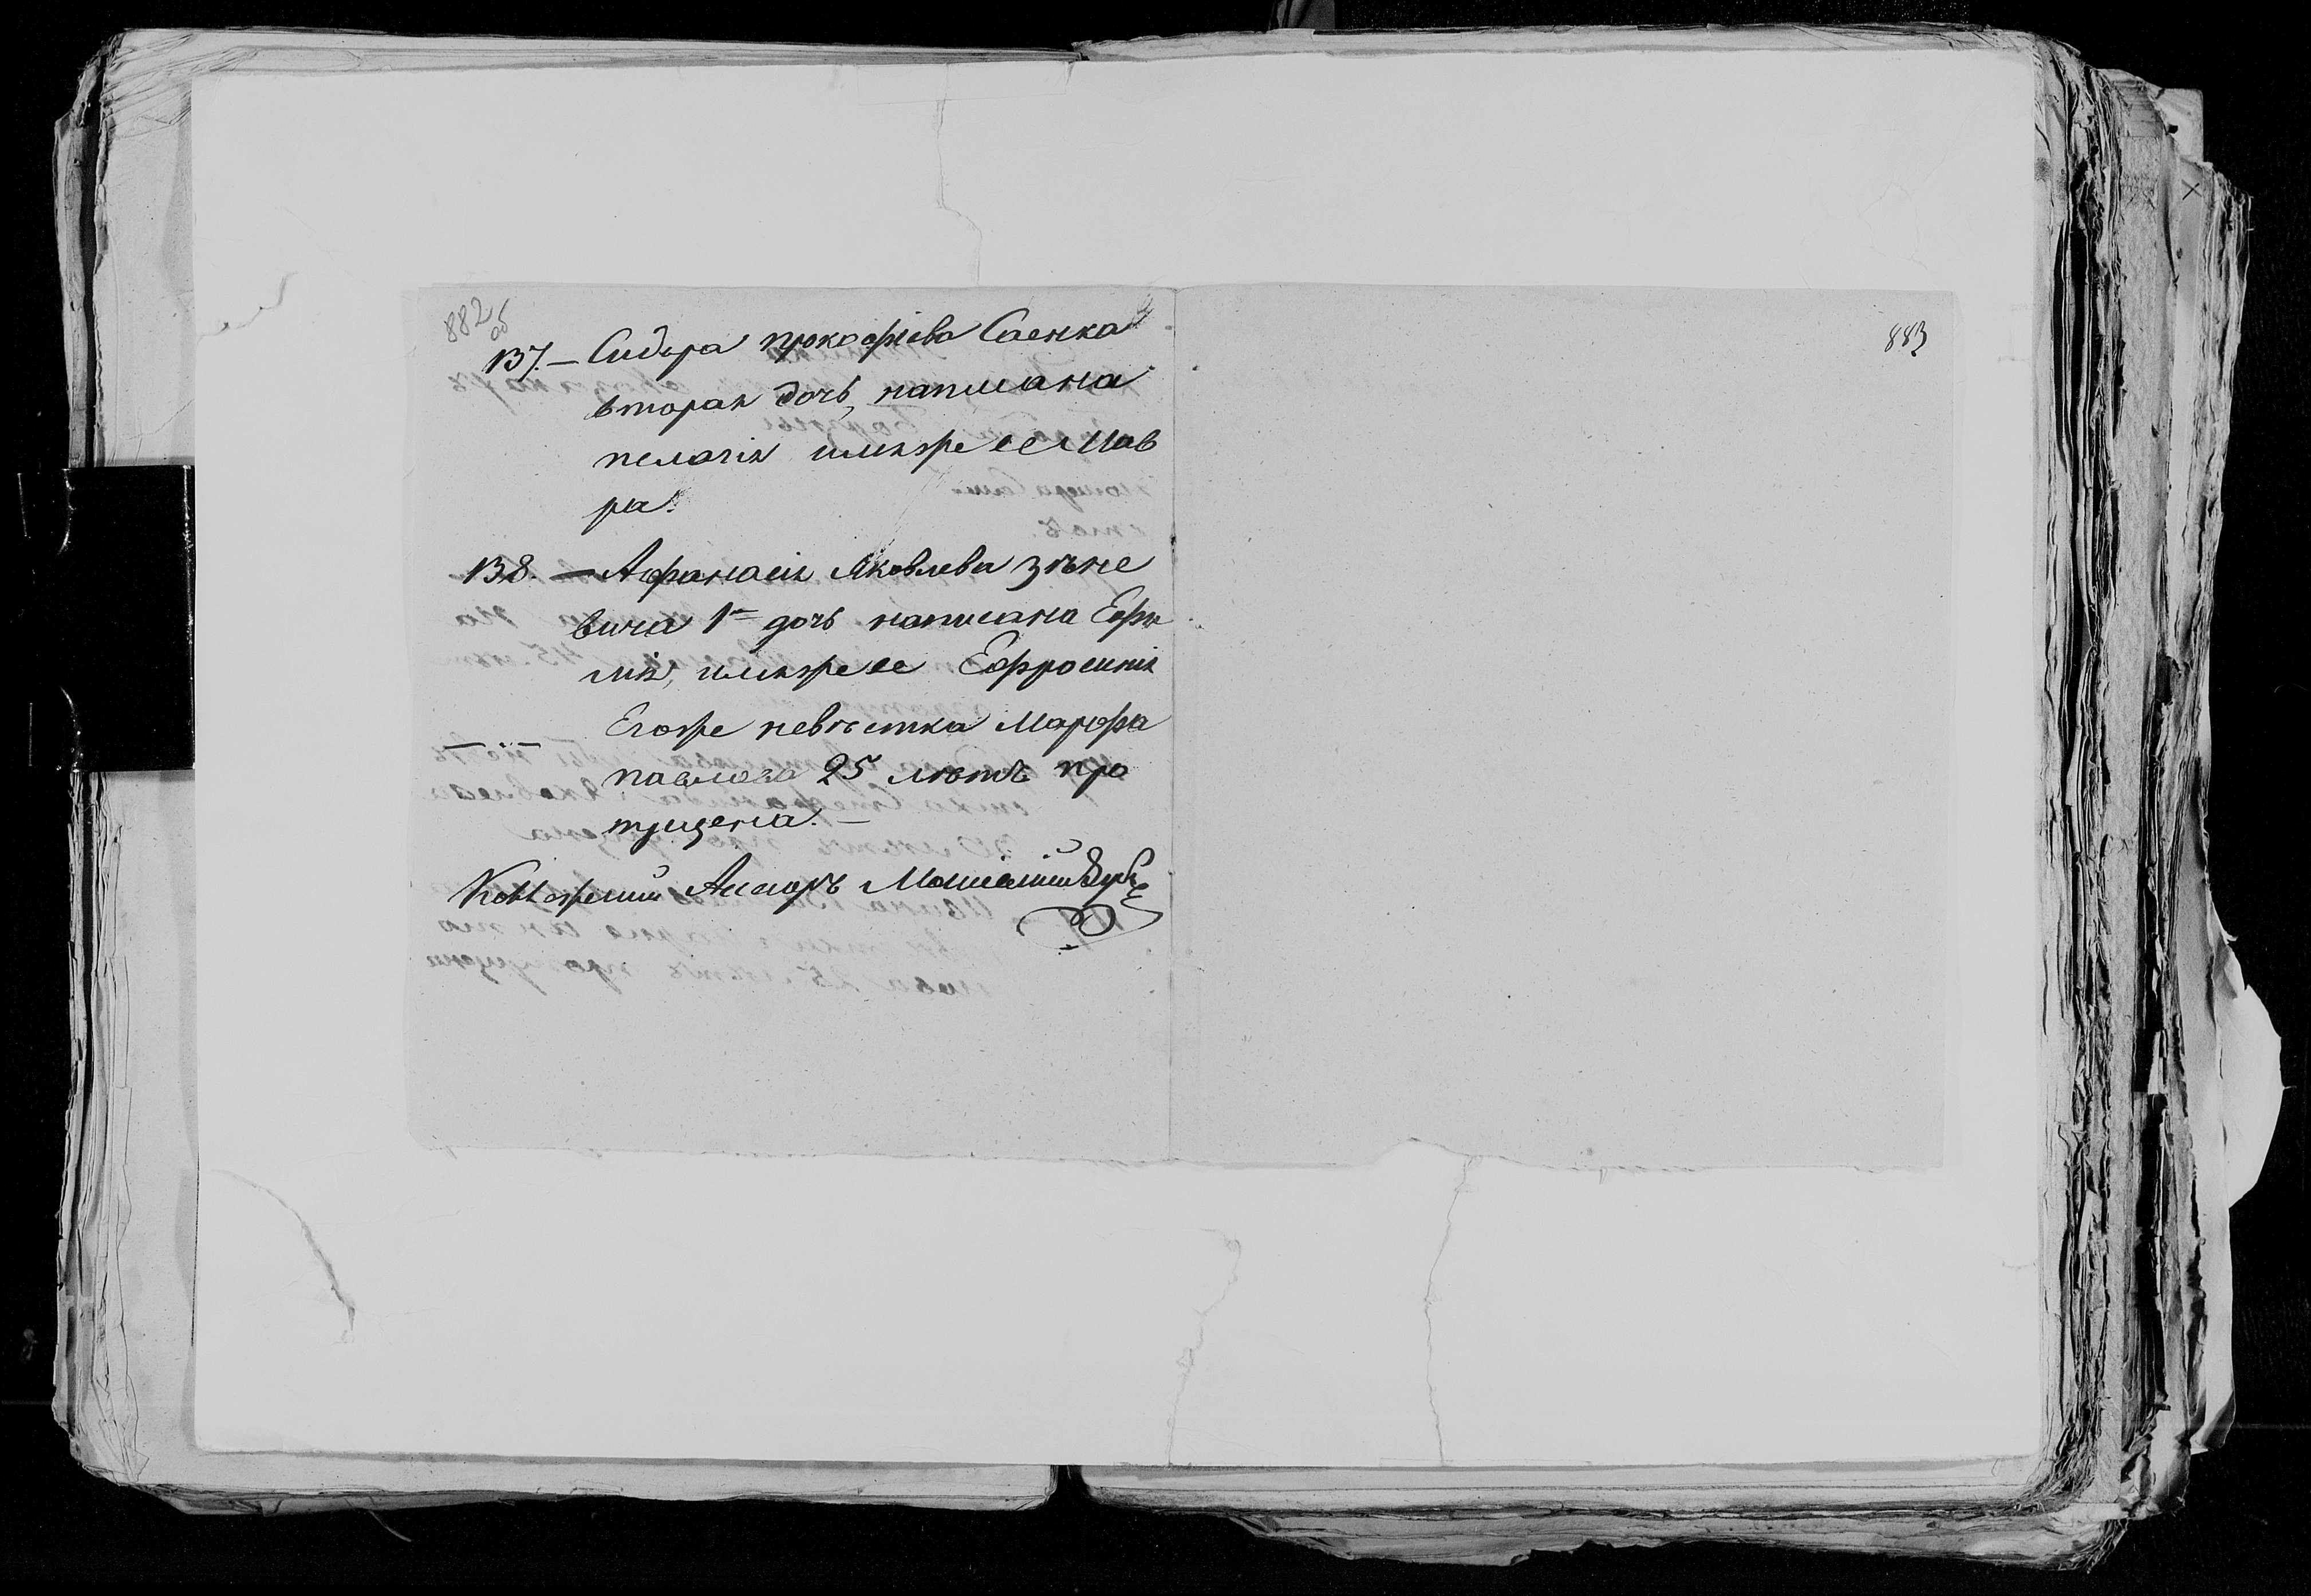 882 об
137. — Сидора прокофіева Саенка
вторая дочь, написана
пелагія имя же ее Мав
ра.
138. — Афанасія Яковлева Зѣне
вича 1я дочь написана Ефи
мія, имя же ее Ефросинія
Его же невѣстка Марфа
павлова 25 лѣтъ про
пущена. —
883